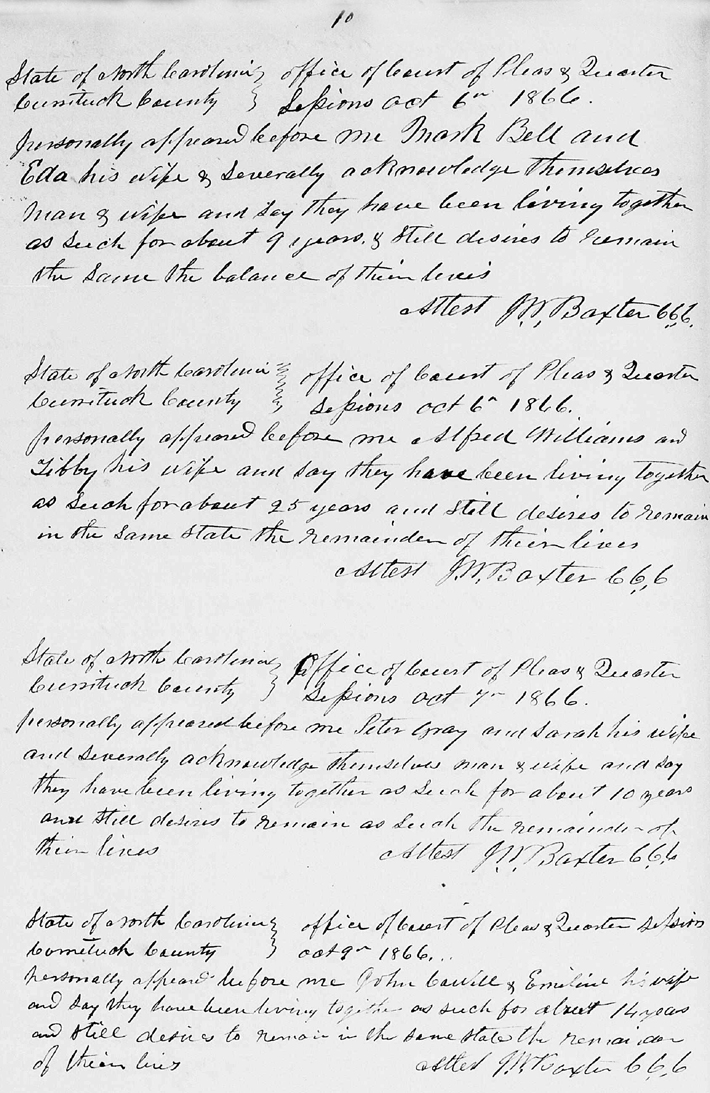 10
State of North Carolina } office of Court of Pleas & Quarter
Currituck County } Sessions Oct 6th 1866.
personally appeared before me Mark Bell and
Eda his wife & Severally acknowledge themselves
man & wife and say they have been living together
as such for about 9 years, & still desires to remain
the same the balance of their lives
Attest J.W. Baxter C.C.C.
State of North Carolina } office of Court of Pleas & Quarter
Currituck County } Sessions Oct 6th 1866.
personally appeared before me Alfred Williams and
Tibby his wife and say they have been living together
as such for about 25 years and still desires to remain
in the same State the remainder of their lives
Attest J.W. Baxter C.C.C
State of North Carolina } Office of Court of Pleas & Quarter
Currituck County } Sessions Oct 7th 1866.
personally appeared before me Peter Gray and Sarah his wife
and Severally acknowledge themselves man & wife and say
they have been living together as such for about 10 years
and still desires to remain as such the remainder of
their lives Attest J.W. Baxter C.C.C
State of North Carolina } office of Court of Pleas & Quarter Sessions
Currituck County } Oct 9th 1866...
personally appeared before me John & Emiline his wife
and say they have been living together as such for about 14 years
and still desires to remain in the same state the remainder
of their lives Attest J.W. Baxter C.C.C